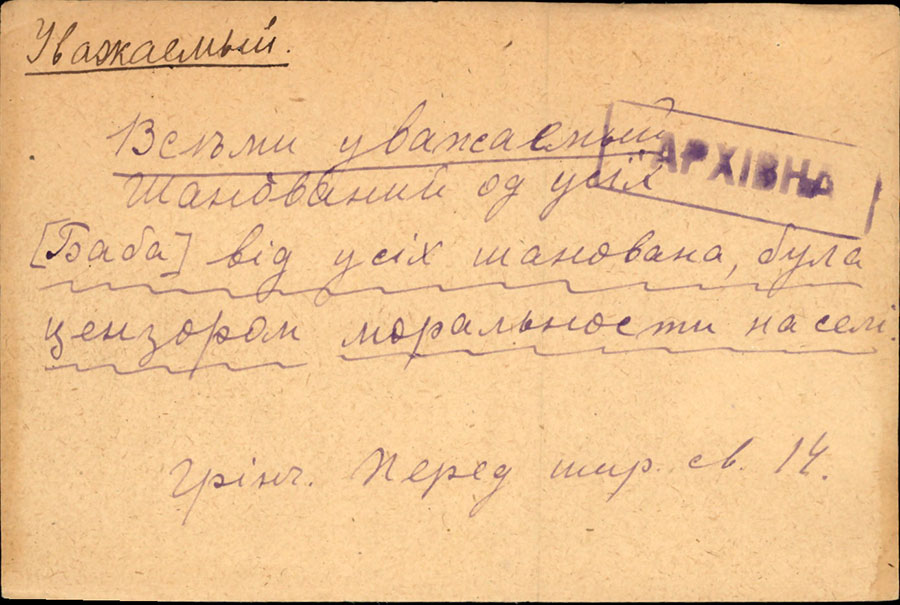 Уважаемый.
Всѣми уважаемый
АРХІВНА
Шанований од усїх
[Баба] від усіх шанована, була
цензором моральности на селі.
Грінч. Перед шир. св. 14.